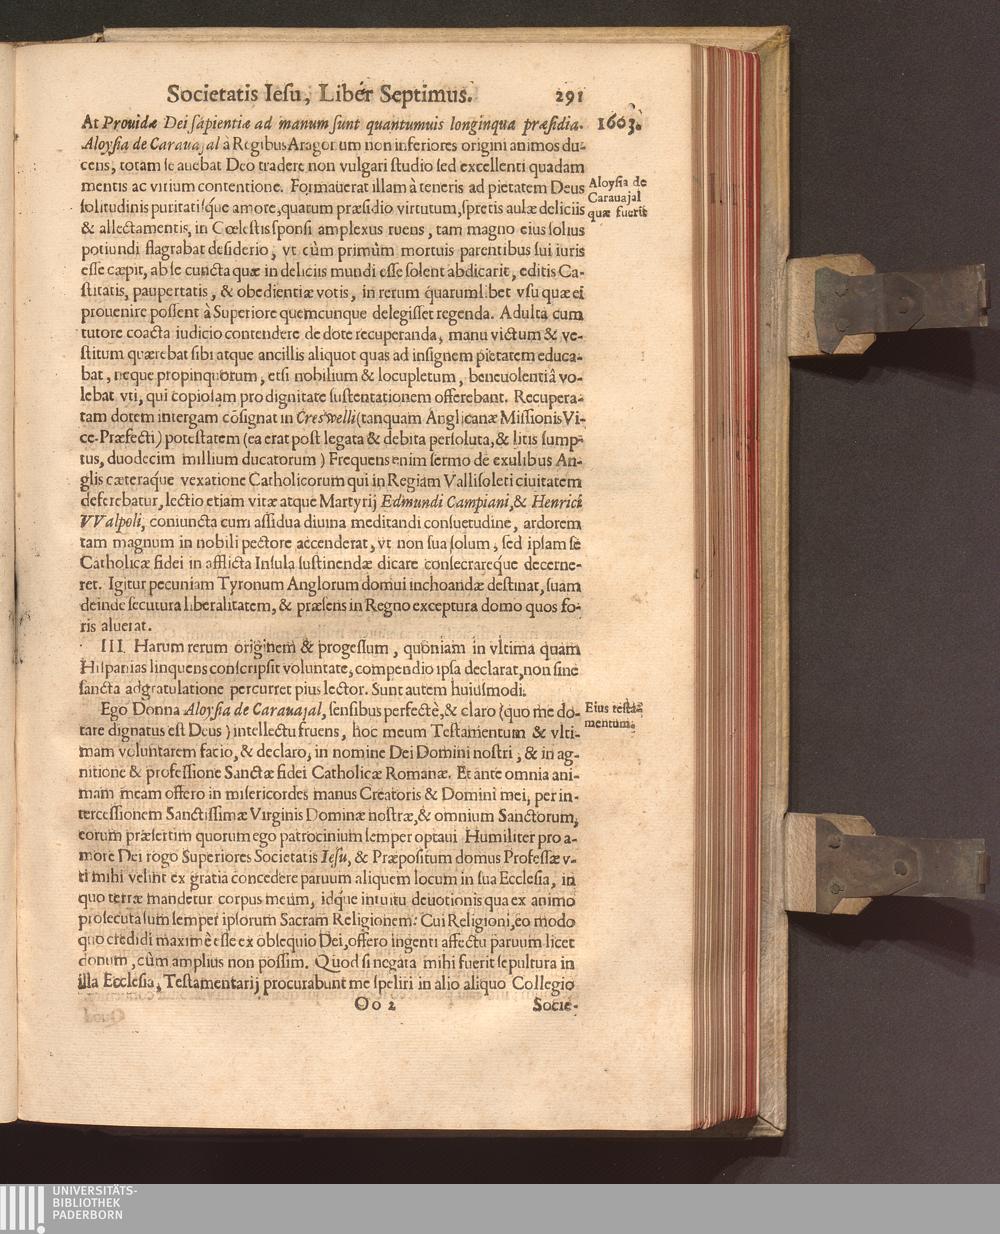 Societatis Iesu, Liber Septimus. 291
At Prouidæ Dei sapientiæ ad manum sunt quantumuis longinqua præsidia. 1603.
Aloysia de Carauajal à Regibus Aragonum non inferiores origini animos du-
cens, totam se auebat Deo tradere non vulgari studio sed excellenti quadam
mentis ac virium contentione. Formauerat illam à teneris ad pietatem Deus
Aloysia de
Carauajal
quæ fuerit
solitudinis puritatisq́ue amore, quarum præsidio virtutum, spretis aulæ deliciis
& allectamentis, in Cœlestis sponsi amplexus ruens, tam magno eius solius
potiundi flagrabat desiderio, vt cùm primùm mortuis parentibus sui iuris
esse cæpit, ab se cuncta quæ in deliciis mundi esse solent abdicarit, editis Ca-
stitatis, paupertatis, & obedientiæ votis, in rerum quarumlibet vsu quæ ei
prouenire possent à Superiore quemcunque delegisset regenda. Adulta cum
tutore coacta iudicio contendere de dote recuperanda, manu victum & ve-
stitum quærebat sibi atque ancillis aliquot quas ad insignem pietatem educa-
bat, neque propinquorum, etsi nobilium & locupletum, beneuolentiâ vo-
lebat vti, qui copiosam pro dignitate sustentationem offerebant. Recupera-
tam dotem intergam cōsignat in Creswelli (tanquam Anglicanæ Missionis Vi-
ce-Præfecti) potestatem (ea erat post legata & debita persoluta, & litis sump-
tus, duodecim millium ducatorum) Frequens enim sermo de exulibus An-
glis cæteraque vexatione Catholicorum qui in Regiam Vallisoleti ciuitatem
deferebatur, lectio etiam vitæ atque Martyrij Edmundi Campiani, & Henrici
VValpoli, coniuncta cum assidua diuina meditandi consuetudine, ardorem
tam magnum in nobili pectore accenderat, vt non sua solum, sed ipsam se
Catholicæ fidei in afflicta Insula sustinendæ dicare consecrareque decerne-
ret. Igitur pecuniam Tyronum Anglorum domui inchoandæ destinat, suam
deinde secutura liberalitatem, & præsens in Regno exceptura domo quos fo-
ris aluerat.
III. Harum rerum originem & progessum, quoniam in vltima quam
Hispanias linquens conscripsit voluntate, compendio ipsa declarat, non sine
sancta adgratulatione percurret pius lector. Sunt autem huiusmodi.
Ego Donna Aloysia de Carauajal, sensibus perfectè, & claro (quo me do-
Eius testa-
mentum.
tare dignatus est Deus) intellectu fruens, hoc meum Testamentum & vlti-
mam voluntatem facio, & declaro, in nomine Dei Domini nostri, & in ag-
nitione & professione Sanctæ fidei Catholicæ Romanæ. Et ante omnia ani-
mam meam offero in misericordes manus Creatoris & Domini mei, per in-
tercessionem Sanctissimæ Virginis Dominæ nostræ, & omnium Sanctorum,
eorum præsertim quorum ego patrocinium semper optaui Humiliter pro a-
more Dei rogo Superiores Societatis Iesu, & Præpositum domus Professæ v-
ti mihi velint ex gratia concedere paruum aliquem locum in sua Ecclesia, in
quo terræ mandetur corpus meum, idq́ue intuitu deuotionis qua ex animo
prosecuta sum semper ipsorum Sacram Religionem: Cui Religioni, eo modo
quo credidi maximè esse ex obsequio Dei, offero ingenti affectu paruum licet
donum, cùm amplius non possim. Quod si negata mihi fuerit sepultura in
illa Ecclesia, Testamentarij procurabunt me speliri in alio aliquo Collegio
Oo 2 Socie-
UNIVERSITÄTS-
BIBLIOTHEK
PADERBORN